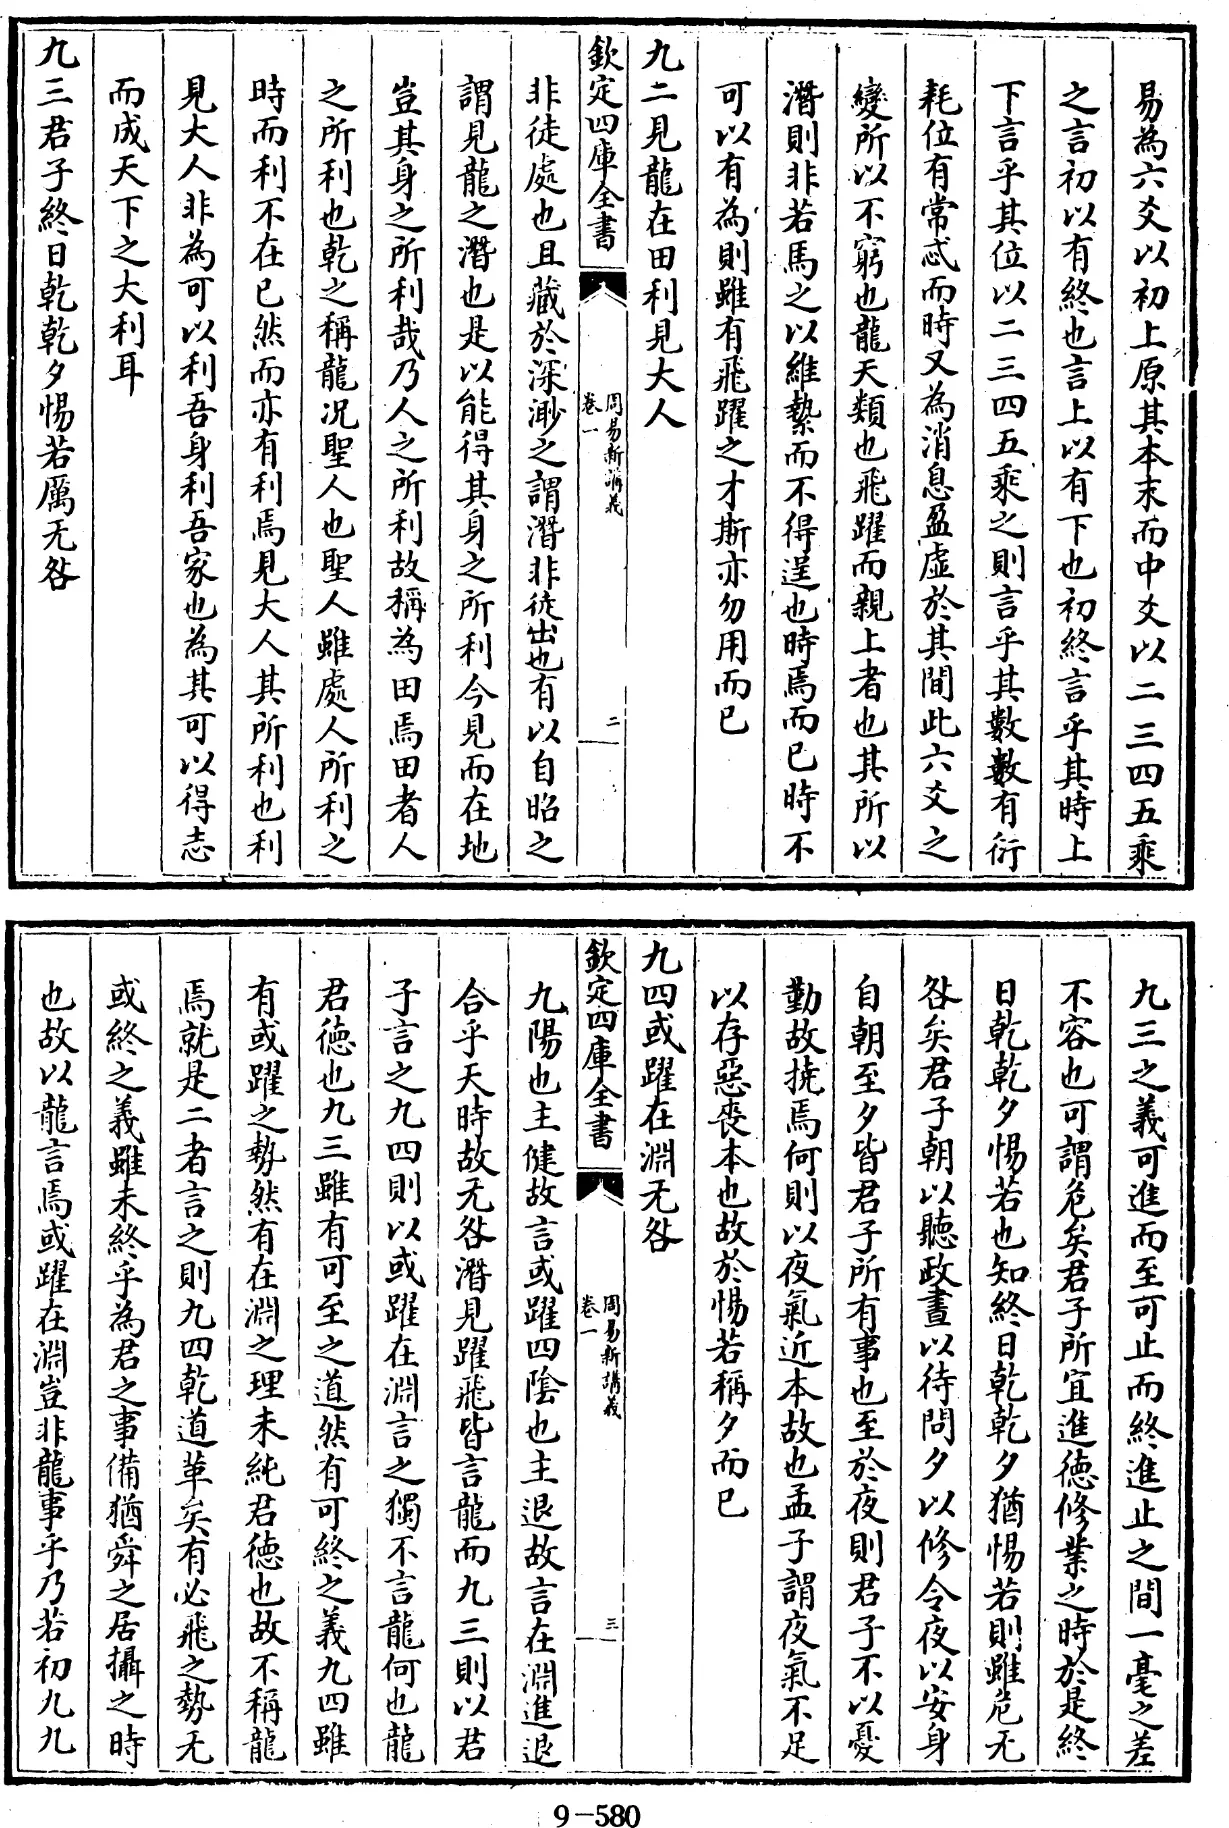 易為六爻以初上原其本末而中爻以二三四五乘
之言初以有終也言上以有下也初終言乎其時上
下言乎其位以二三四五乘之則言乎其數數有衍
耗位有常忒而時又為消息盈虛於其間此六爻之
變所以不窮也龍天類也飛躍而親上者也其所以
潛則非若馬之以維縶而不得逞也時焉而已時不
可以有為則雖有飛躍之才斯亦勿用而已
九二見龍在田利見大人
欽定四庫全書
周易新講義
卷一
二
非徒處也且藏於深渺之謂潛非徒出也有以自昭之
謂見龍之潛也是以能得其身之所利今見而在地
豈其身之所利哉乃人之所利故稱為田焉田者人
之所利也乾之稱龍況聖人也聖人雖處人所利之
時而利不在已然而亦有利焉見大人其所利也利
見大人非為可以利吾身利吾家也為其可以得志
而成天下之大利耳
九三君子終日乾乾夕惕若厲无咎
九三之義可進而至可止而終進止之間一毫之差
不容也可謂危矣君子所宜進德修業之時於是終
日乾乾夕惕若也知終日乾乾夕猶惕若則雖危无
咎矣君子朝以聽政晝以待問夕以修令夜以安身
自朝至夕皆君子所有事也至於夜則君子不以憂
勤故撓焉何則以夜氣近本故也孟子謂夜氣不足
以存惡喪本也故於惕若稱夕而已
九四或躍在淵无咎
欽定四庫全書
周易新講義
卷一
三
九陽也主健故言或躍四陰也主退故言在淵進退
合乎天時故无咎潛見躍飛皆言龍而九三則以君
子言之九四則以或躍在淵言之獨不言龍何也龍
君德也九三雖有可至之道然有可終之義九四雖
有或躍之勢然有在淵之理未純君德也故不稱龍
焉就是二者言之則九四乾道革矣有必飛之勢无
或終之義雖未終乎為君之事備猶舜之居攝之時
也故以龍言焉或躍在淵豈非龍事乎乃若初九九
9-580